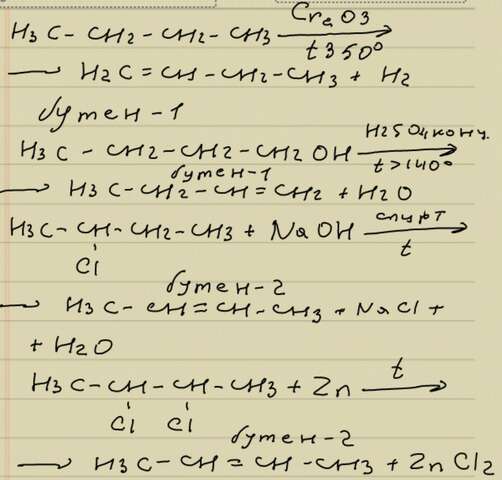 H3C - CH2 - CH2 - CH3 Cr2O3 t350°
→ H2C = CH - CH2 - CH3 + H2
бутен-1
H3C - CH2 - CH2 - CH2OH H2SO4 конц. t>140° →
бутен-1
→ H3C - CH2 - CH = CH2 + H2O
H3C - CH - CH2 - CH3 + NaOH спирт t →
Cl
бутен-2
→ H3C - CH = CH - CH3 + NaCl +
+ H2O
H3C - CH - CH - CH3 + Zn t →
Cl Cl
бутен-2
→ H3C - CH = CH - CH3 + ZnCl2